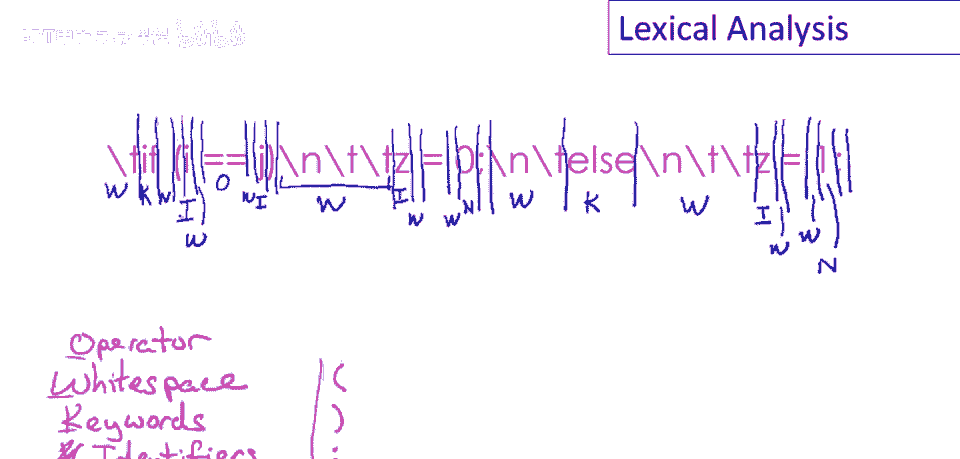 Lexical Analysis
\tif (i == j)\n\t\tz = 0;\n\telse\n\t\tz = 1;
W K W I W O W I W I W W N W K W I W W N
Operator
Whitespace (
Keywords )
Identifiers ;